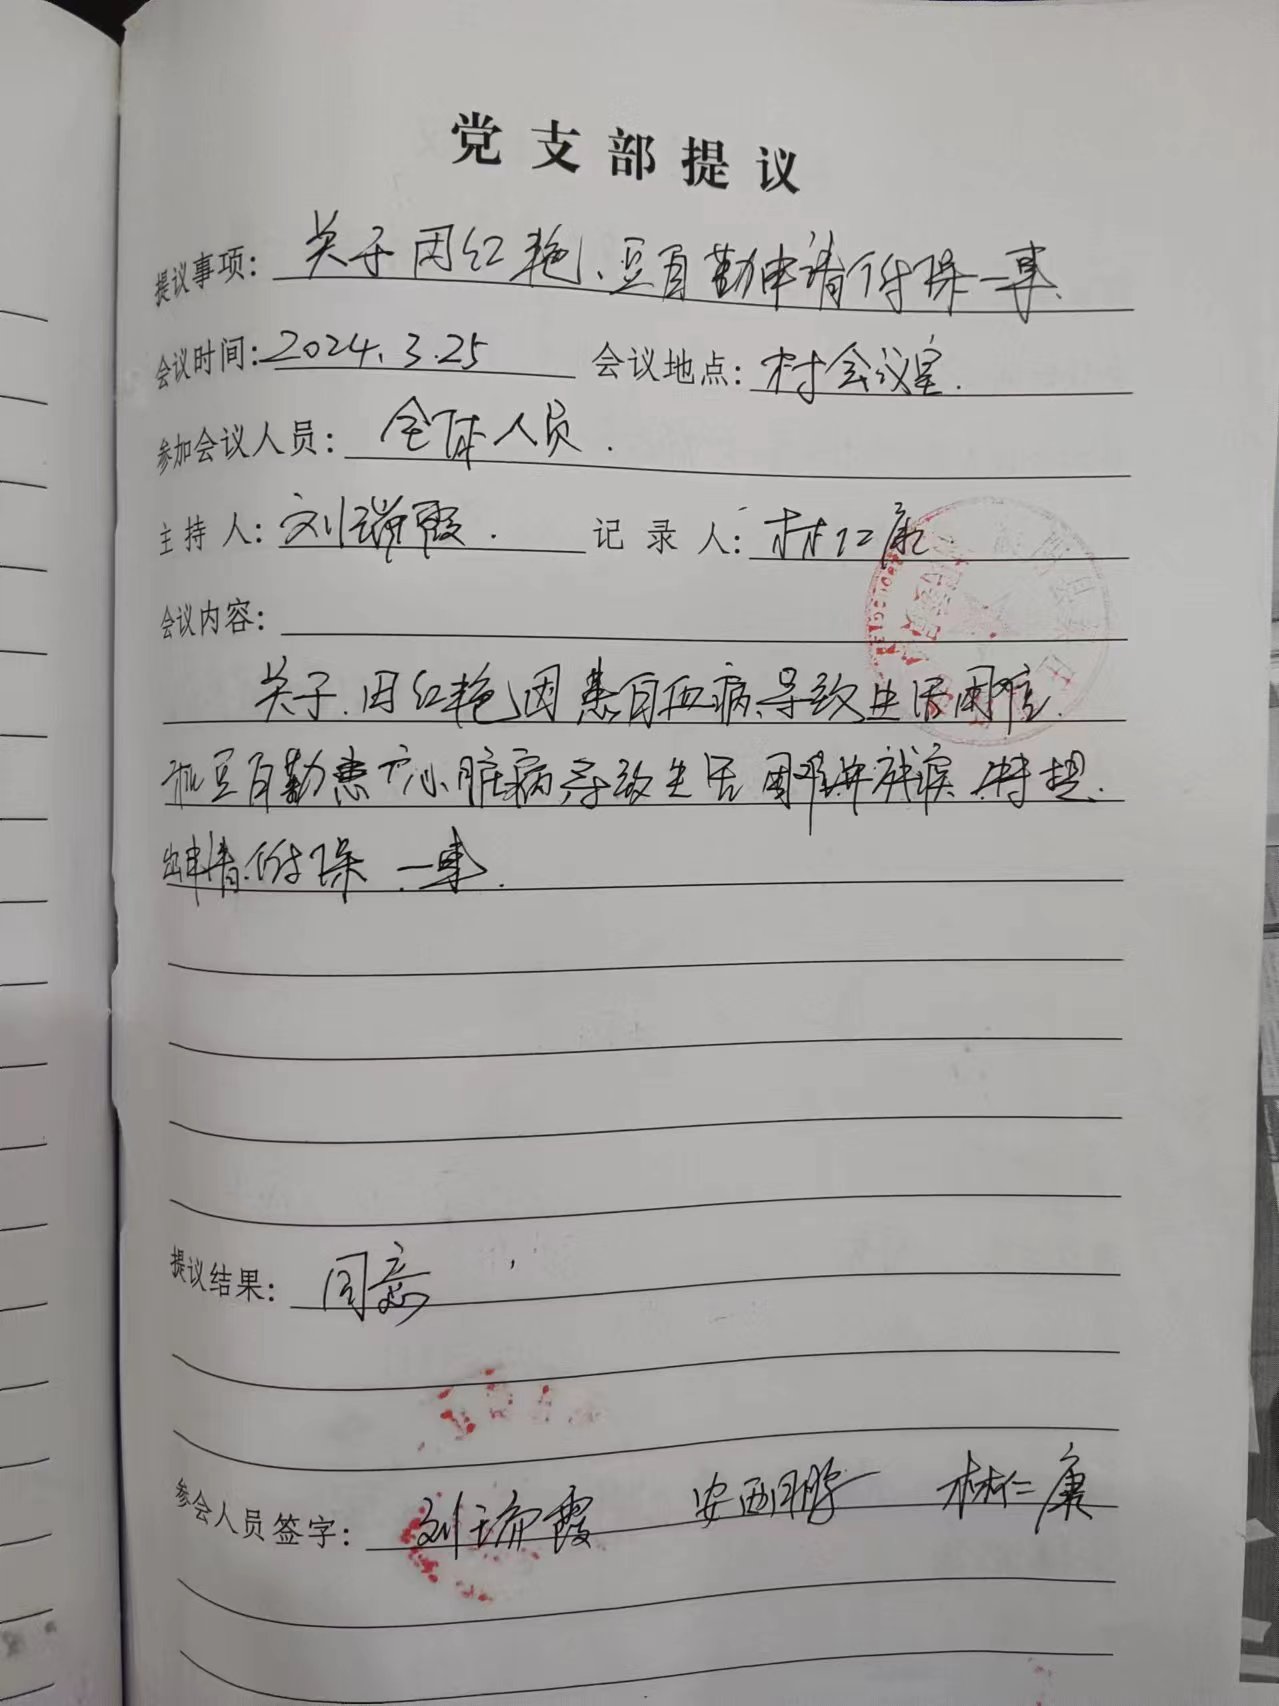 党支部提议
提议事项：关于田红艳、豆百勤申请低保一事.
会议时间：2024.3.25 会议地点：村会议室.
参加会议人员：全体人员.
主持人：刘瑞霞. 记录人：林仁康
会议内容：
关于田红艳因患白血病导致生活困难.
和豆百勤患心脏病导致生活困难并残疾.特提.
出申请低保一事.
提议结果：同意
参会人员签字：刘瑞霞 安西鹏 林仁康